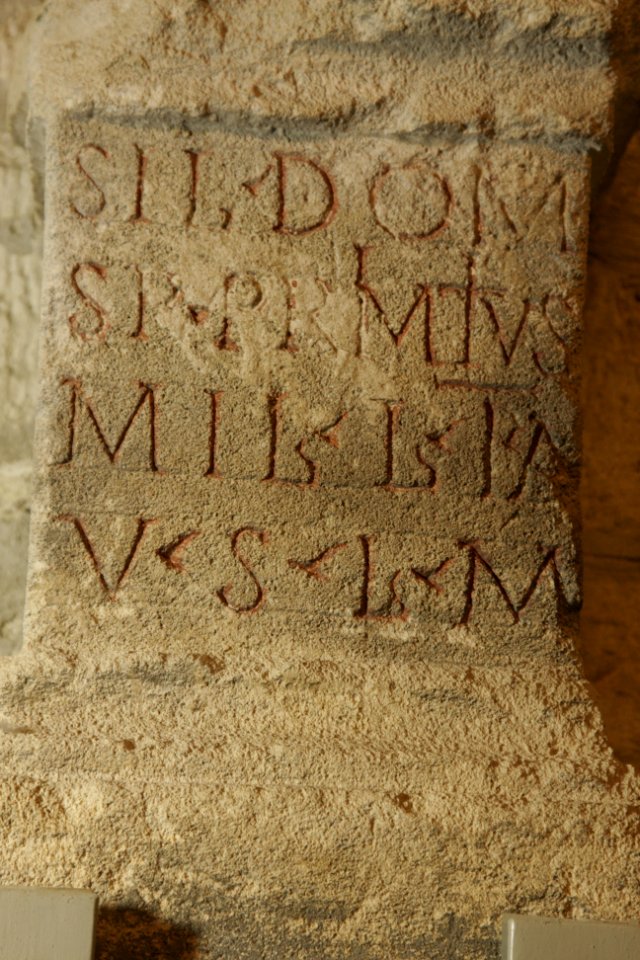 SIL·DOM
SP·PRIMIVS
MIL·L·I·M
V·S·L·M